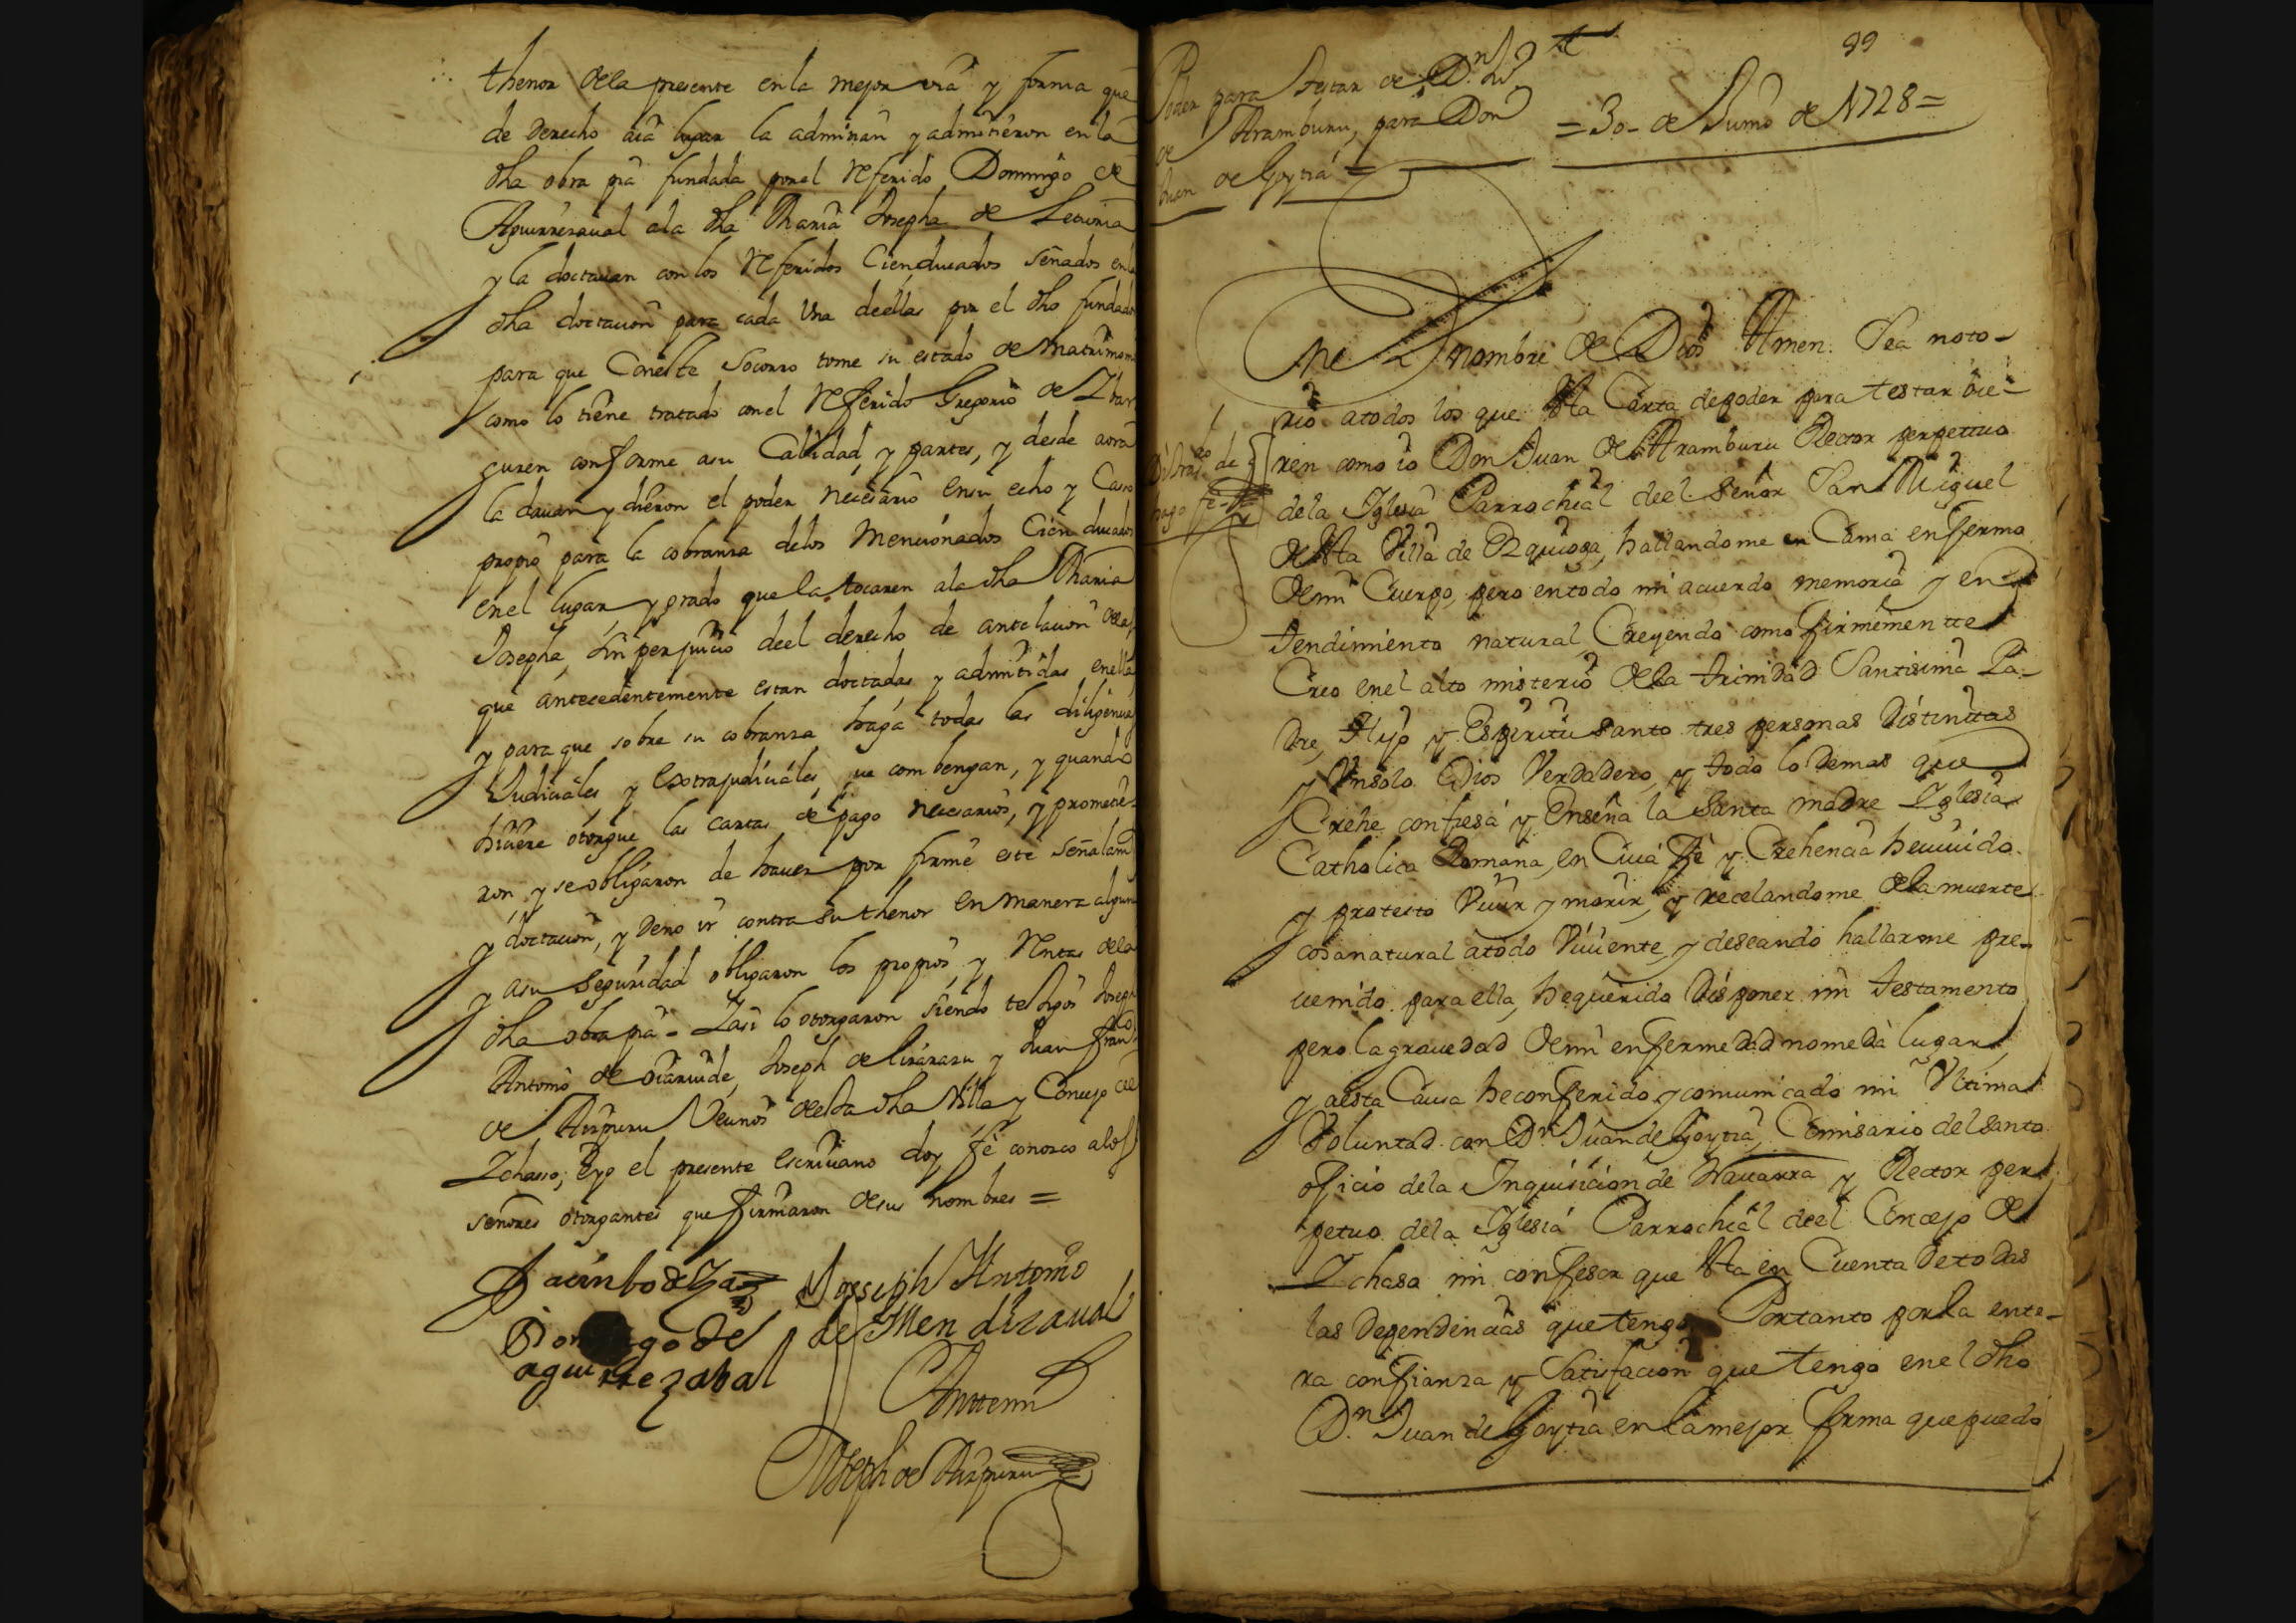 thenor dela presente en la mejor via y forma que
de derecho aia lugar la admitian y admitieron en la
dha obra pia fundada por el referido Domingo de
Aguirresaual ala dha Maria Josepha de Leturia
y la doctauan con los referidos Cien ducados señados en la
dha doctacion para cada Una deellas por el dho fundador
para que Coneste socorro tome su estado de Matrimonio
como lo tiene tratado con el referido Gregorio de Ybar
guren conforme asu Calidad y partes, y desde aora
la dauan y dieron el poder necesario ensu echo y Causa
propio para la cobranza delos Mencionados Cien ducados
en el lugar, y grado que la tocaren ala dha Maria
Josepha, sin perjuicio deel derecho de antelacion delas
que antecedentemente estan doctadas y admitidas enella
y para que sobre su cobranza haga todas las diligencias
Judiciales y Extrajudiciales, que combengan, y quando
hiciere otorgue las cartas de pago necesarios, y prometie-
ron, y se obligaron de hauer por firme este señalam
y doctacion, y deno ir contra su thenor en manera alguna
y asu seguridad obligaron los propios y Rentas dela
dha obra pia = Y asi lo otorgaron siendo testigos Joseph
Antonio de Oiaruide, Joseph de Lizarazu y Juan Fran.co
de Aizpuru Vecinos desta dha Villa y Concejo de
Ychasso; Eyo el presente escriuano doy fe conozco alos
señores otorgantes que firmaron desus nombres =
Jacinbo de Joseph Antonio
Domingo de de Mendizaual
aguirrezabal
Anttemi
Joseph de Aizpuru
99
Poder para testar de Dn Ju.o
de Aramburu, para Don
Juan de Goytia =
= 30 - de Junio de 1728 =
Enel nombre de Dios Amen. Sea noto-
rio atodos los que esta Carta depoder para testar vie-
ren como io Don Juan de Aramburu Rector perpetuo
dela Iglesia Parrochial deel señor San Miguel
desta Villa de Ezquioga, hallandome en Cama enfermo
demi Cuerpo, pero entodo mi acuerdo memoria y en
tendimiento natural, Creyendo como firmementte
Creo enel alto misterio dela trinidad Santisima Pa-
dre, Hijo y Espiritu santo tres personas distinttas
y Unsolo Dios Verdadero, y todo lo demas que
Crehe confiesa y Enseña la Santa madre Iglesia
Catholica Romana, en Cuia Fe y Crehencia heuiuido
y protesto Viuir y morir, y recelandome dela muerte
cosanatural atodo Viuiente y deseando hallarme pre-
uenido para ella, hequerido disponer mi testamento
pero la grauedad demi enfermedad nome da lugar
y aesta Causa heconferido y comunicado mi Vltima
Voluntad con Dn Juan de Goytia, Comisario del santo
oficio dela Inquisicion de Nauarra y Rector per
petuo dela Iglesia Parrochial deel Concejo de
Ychaso mi confesor que esta en Cuenta de todas
las dependencias que tengo Portanto por la ente-
ra confianza y Satisfacion que tengo enel dho
Dn Juan de Goytia en la mejor forma que puedo